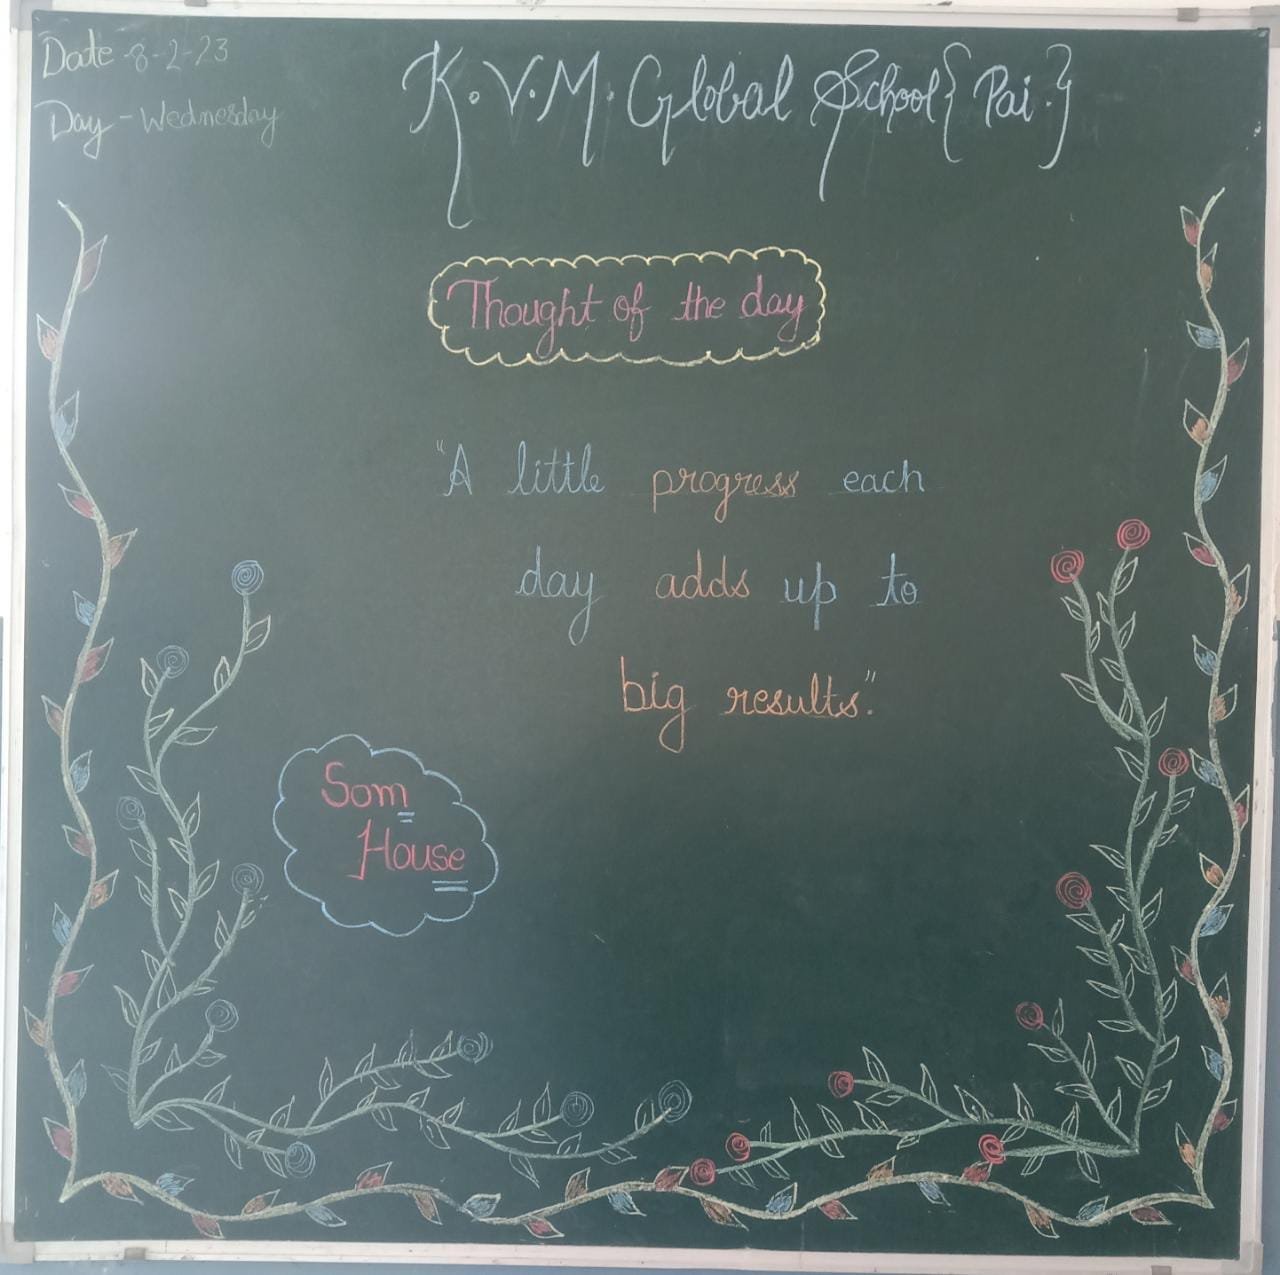 Date -8-2-23
Day - Wednesday
K.V.M. Global School {Pai.}
Thought of the day
"A little progress each
day adds up to
big results."
Som
House